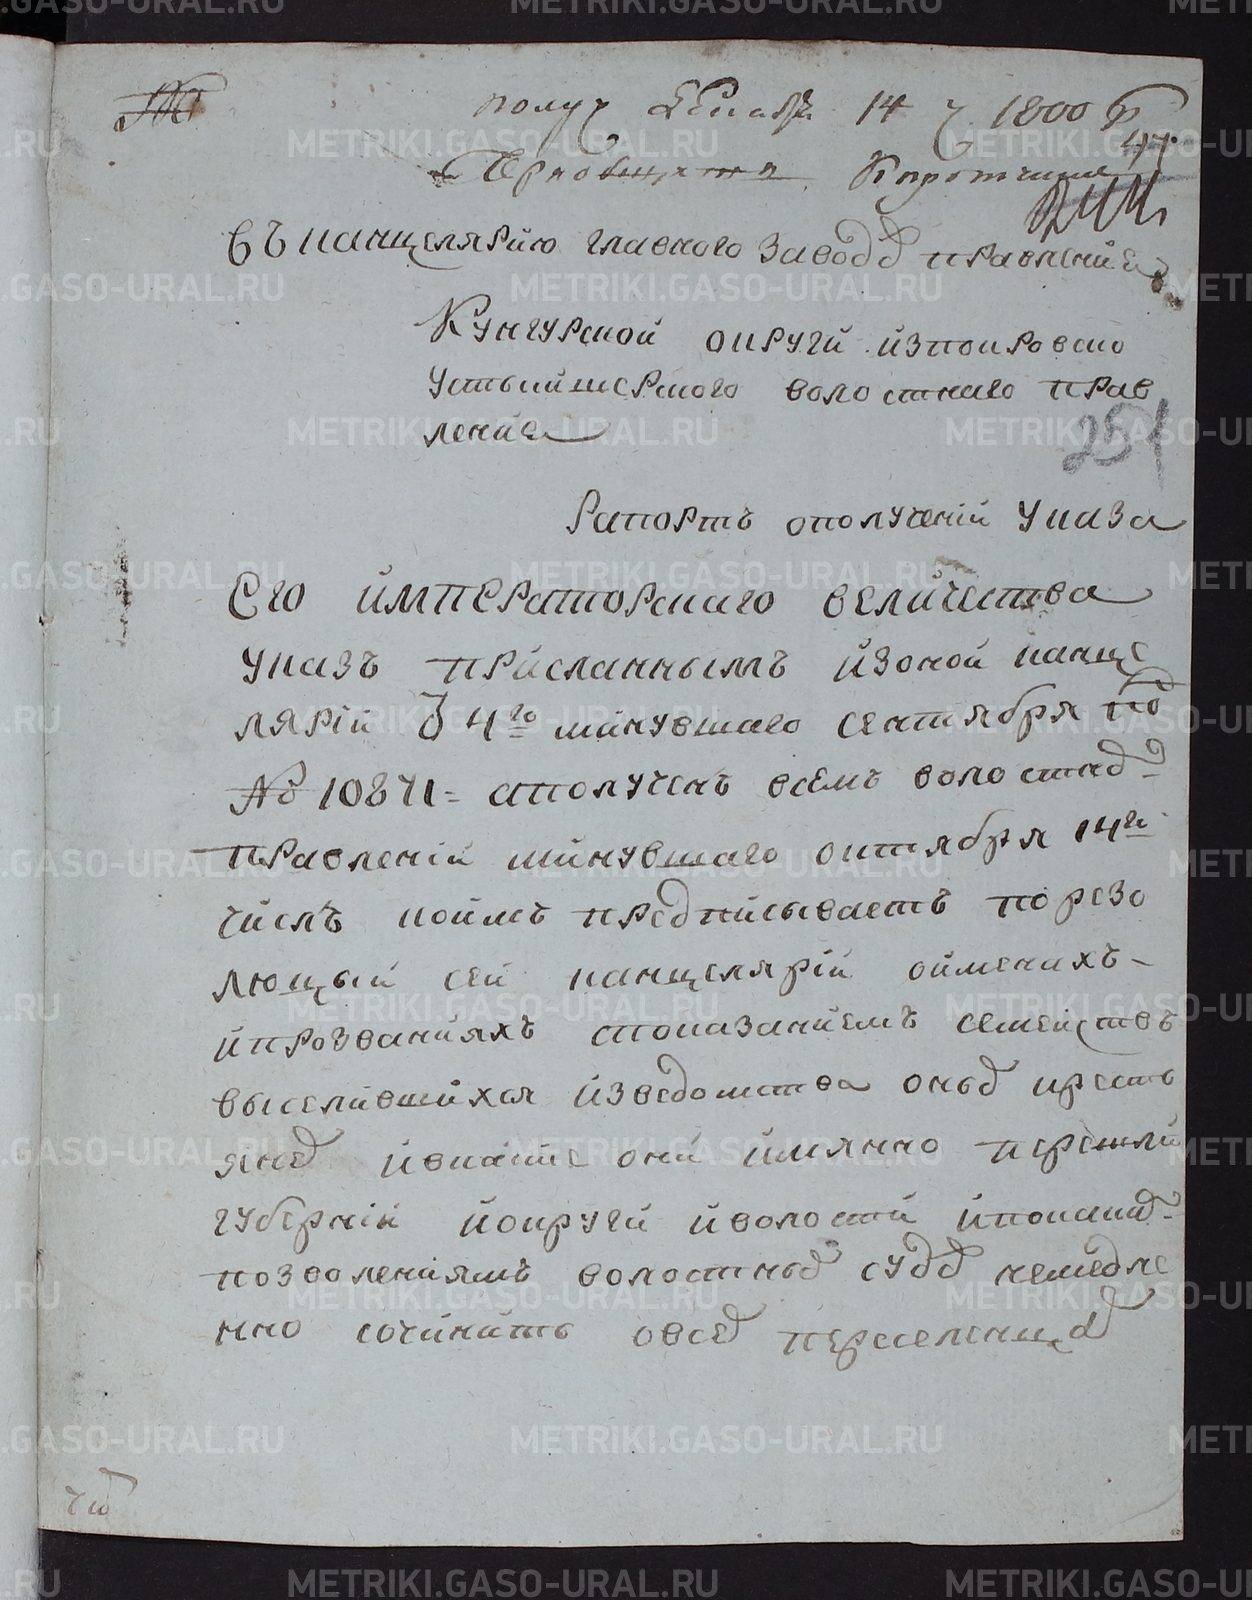 №
получ Декабр 14 ч 1800 г
47
въ канцелярию главного завод правления
Кунгурской округи изпокровско
устькишерского волостнаго прав
ления
251
Рапортъ ополучений указа
Его императорскаго величества
указъ присланнымъ изоной канце
лярий 4го минувшаго сентября под
№ 10871 = аполученъ всемъ волостно
правлений минувшаго октября 14го
числъ коимъ предписываетъ по резо
люцый сей канцелярий оименахъ
ипрозванияхъ спогазаниемъ семействъ
выселившихся изведомства оных кресть
янъ ивкакие они имянно перешли
губерний иокруги иволости ипокаки
позволениямъ волостных суд немедле
нно сочинить овсех переселенцах
METRIKI.GASO-URAL.RU